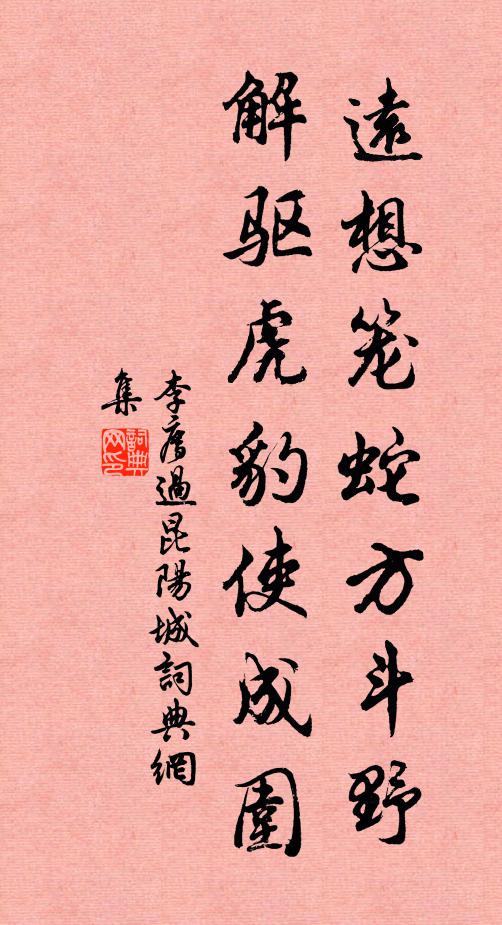 遠想笼蛇方斗野
解驱虎豹使成圍
李廌過昆陽城詞典網
集
詞典
网印